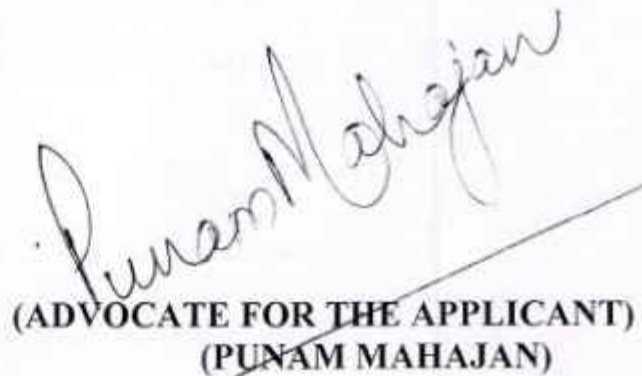 Punam Mahajan
(ADVOCATE FOR THE APPLICANT)
(PUNAM MAHAJAN)